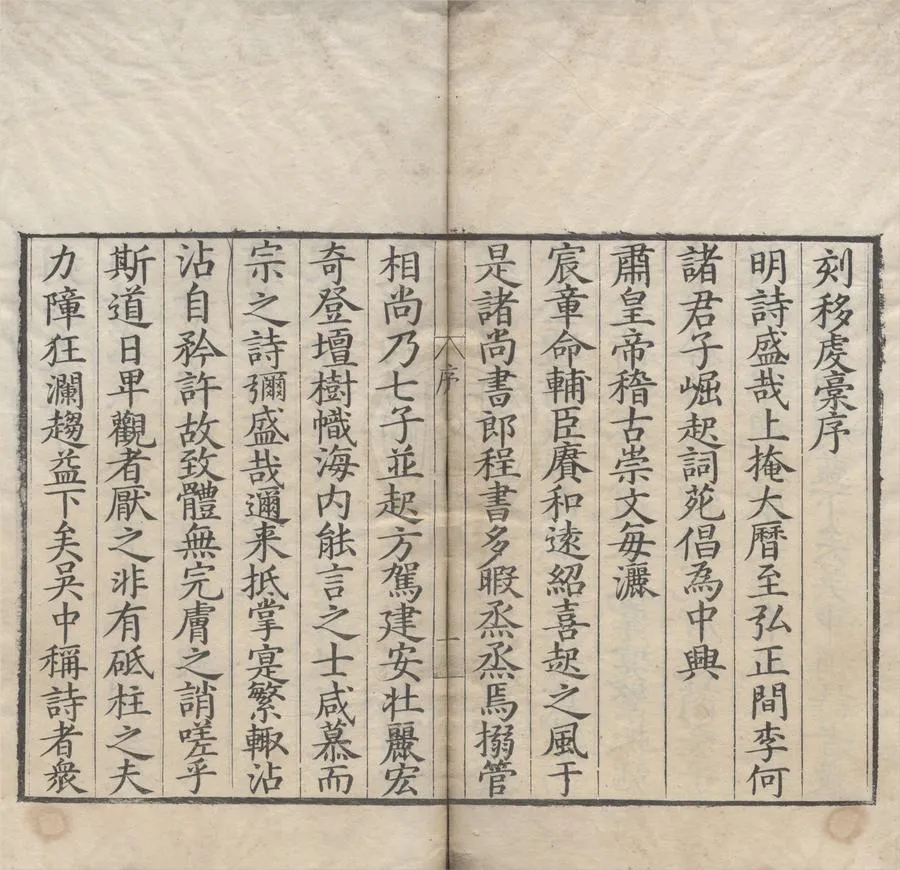 刻移虔稾序
明詩盛哉上掩大曆至弘正間李何
諸君子崛起詞苑倡為中興
肅皇帝稽古崇文每灑
宸章命輔臣賡和遠紹喜起之風于
是諸尚書郎程書多暇烝烝焉搦管
序
一
相尚乃七子並起方駕建安壯麗宏
奇登壇樹幟海内能言之士咸慕而
宗之詩彌盛哉邇来抵掌寔繁輙沾
沾自矜許故致體無完膚之誚嗟乎
斯道日卑觀者厭之非有砥柱之夫
力障狂瀾趨益下矣吳中稱詩者衆